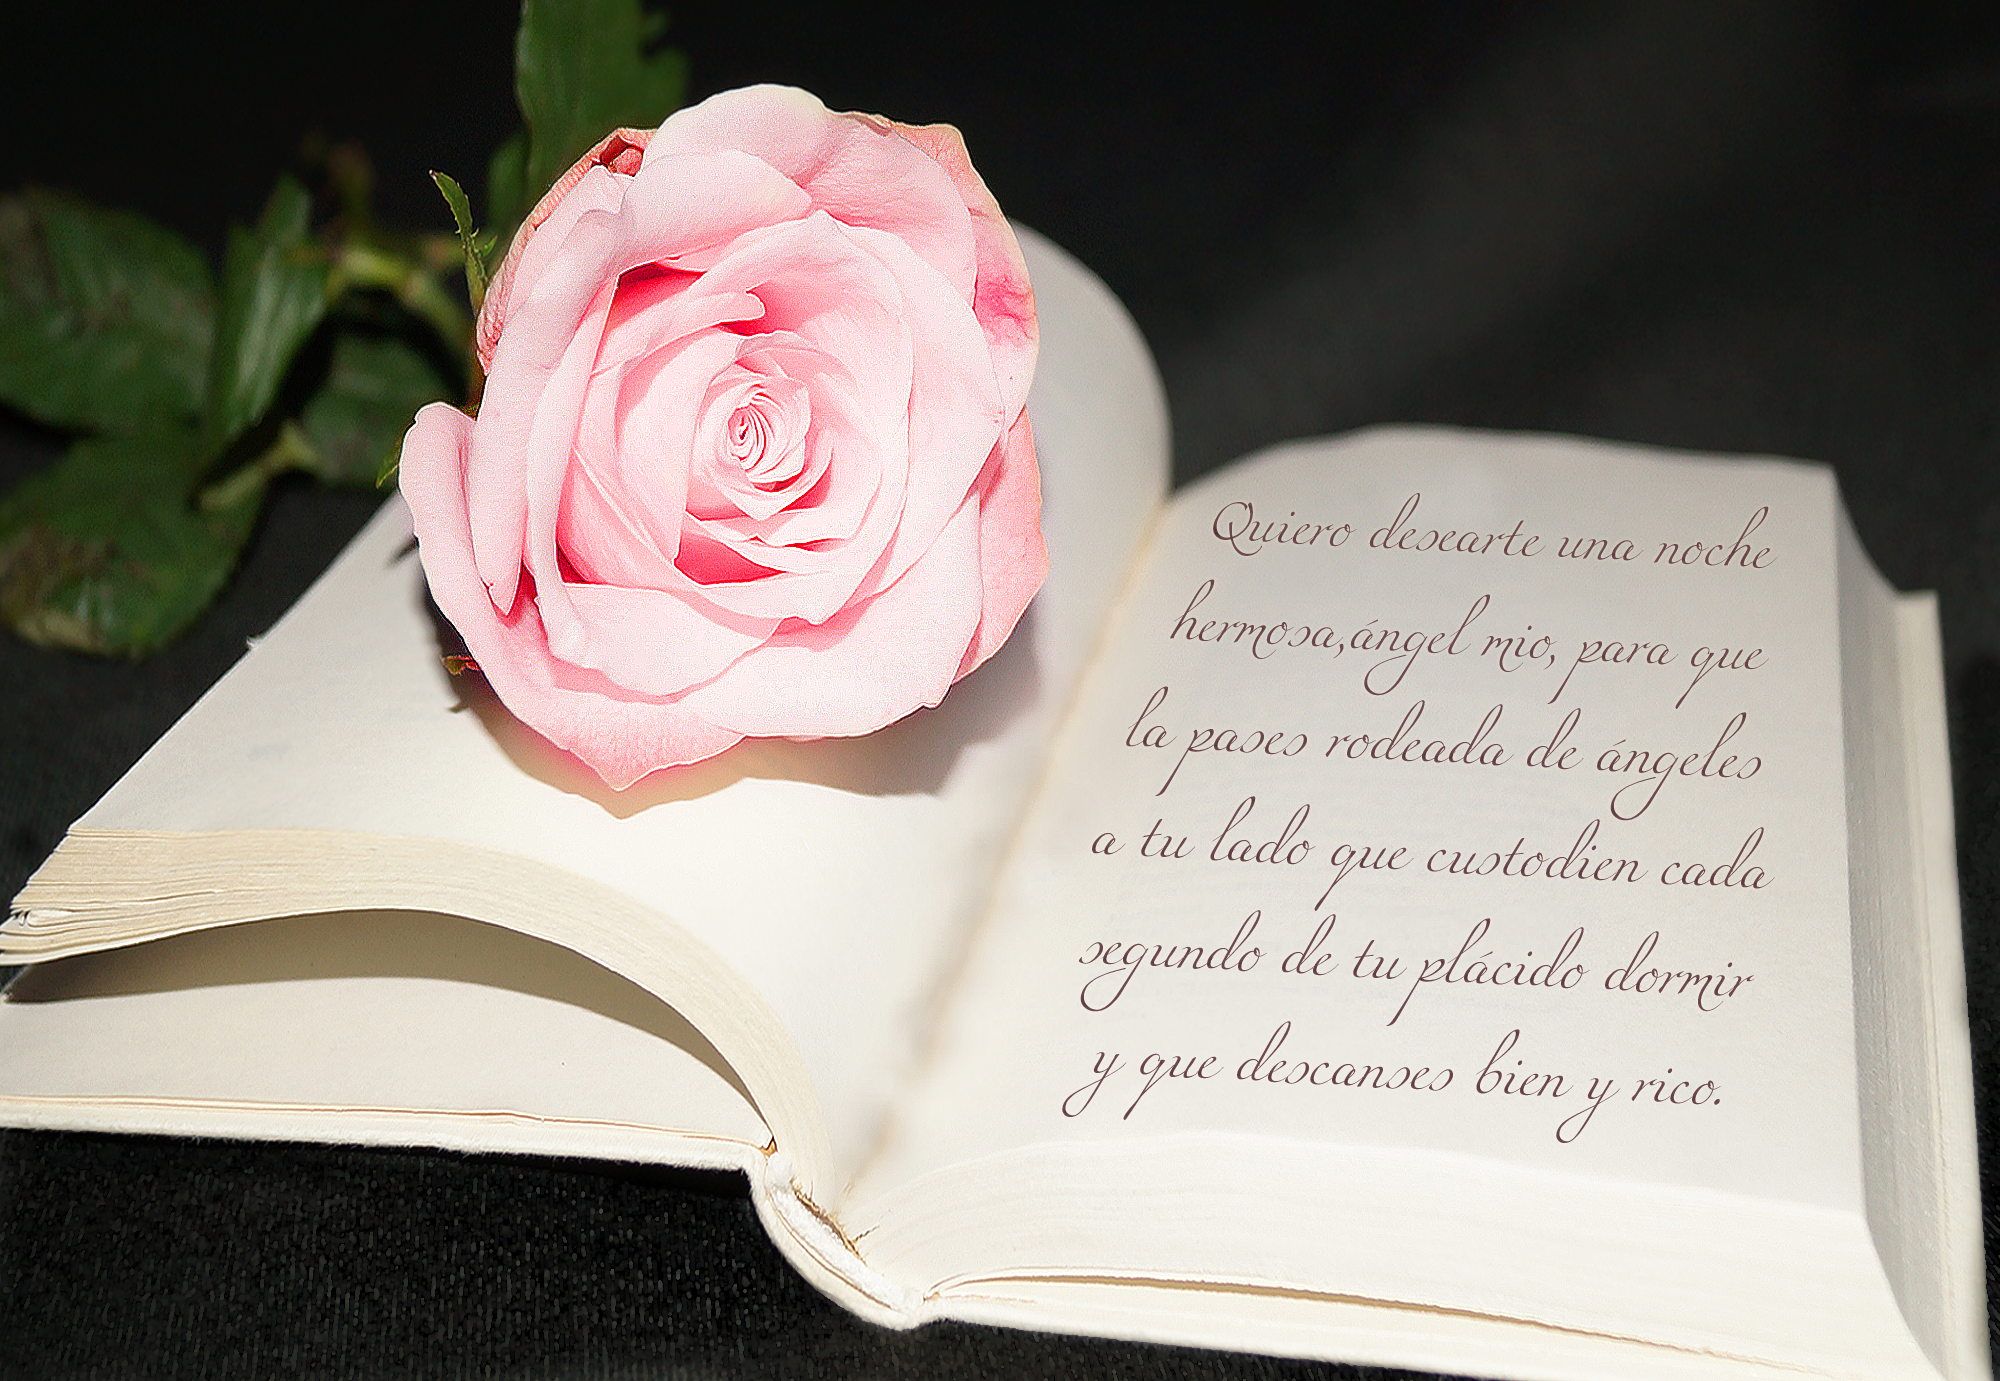 Quiero desearte una noche
hermosa,ángel mio, para que
la pases rodeada de ángeles
a tu lado que custodien cada
segundo de tu plácido dormir
y que descanses bien y rico.